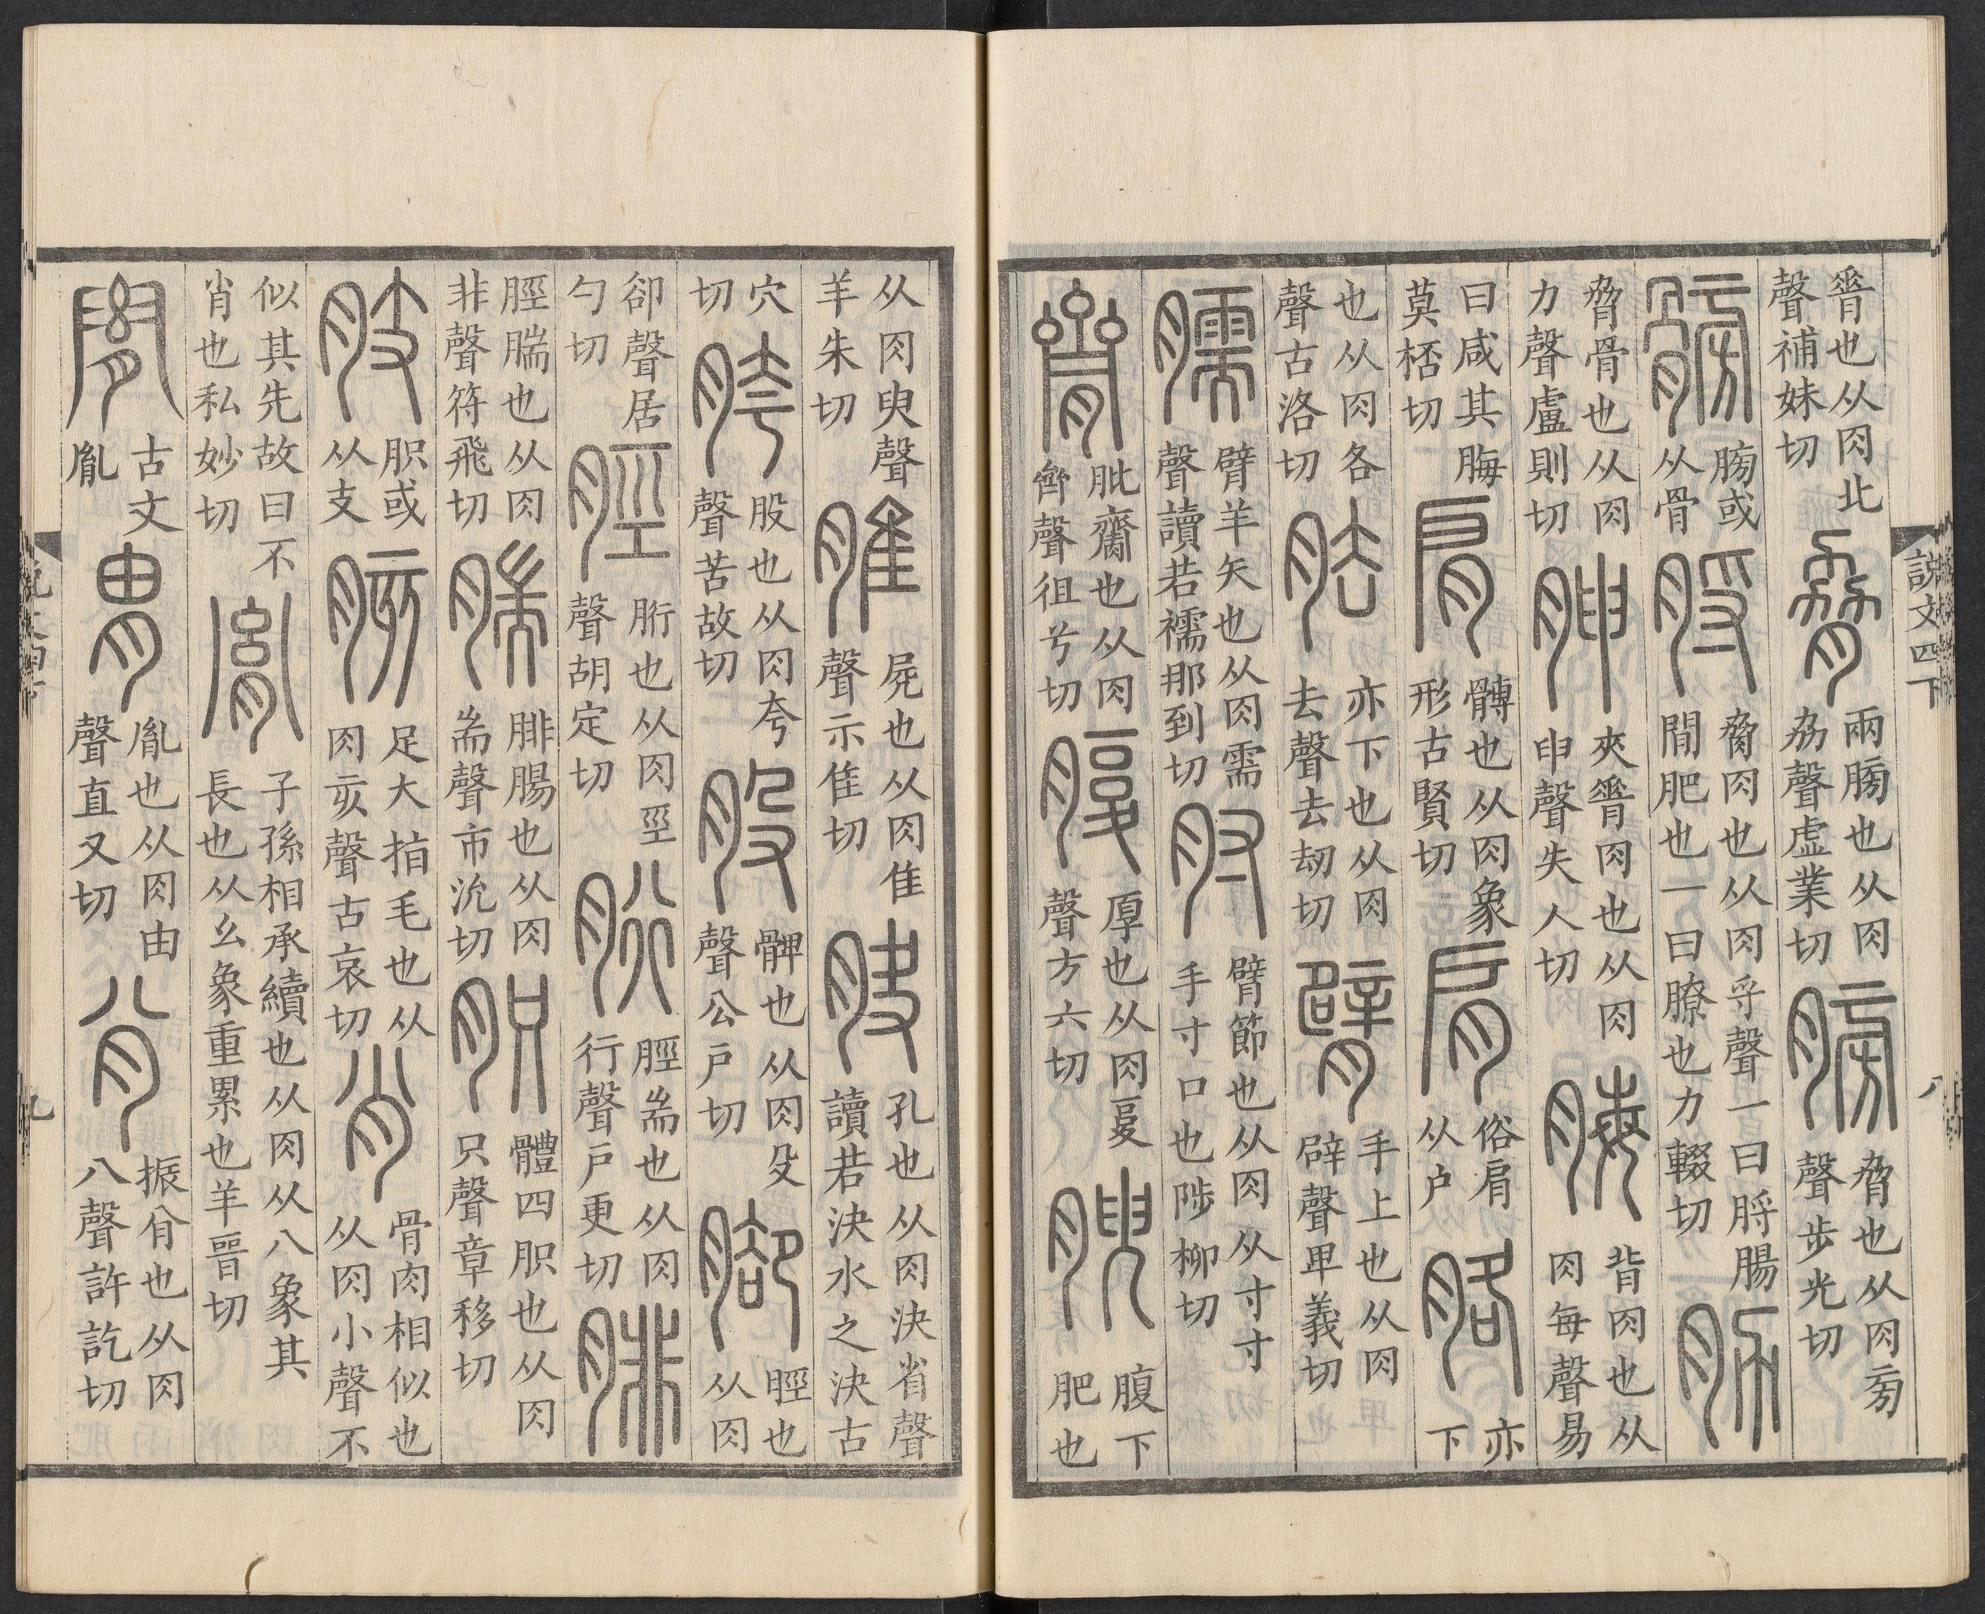 說文四下
八
脊也从肉北聲補妹切脅兩膀也从肉劦聲虛業切膀脅也从肉㫄聲步光切
髈膀或从骨脟脅肉也从肉寽聲一曰脟腸間肥也一曰膫也力輟切肋
脅骨也从肉力聲盧則切胂夾脊肉也从肉申聲失人切脢背肉也从肉每聲易
曰咸其脢莫桮切肩髆也从肉象形古賢切肩俗肩从户胳亦下
也从肉各聲古洛切胠亦下也从肉去聲去劫切臂手上也从肉辟聲卑義切
臑臂羊矢也从肉需聲讀若襦那到切肘臂節也从肉从寸寸手寸口也陟柳切
臍肶齎也从肉齊聲徂兮切腹厚也从肉复聲方六切腴腹下肥也
从肉臾聲羊朱切脽屍也从肉隹聲示隹切肤孔也从肉決省聲讀若決水之決古
穴切胯股也从肉夸聲苦故切股髀也从肉殳聲公戶切腳脛也从肉
卻聲居勺切脛胻也从肉巠聲胡定切胻脛耑也从肉行聲戶更切腓
脛腨也从肉非聲符飛切腨腓腸也从肉耑聲市沇切胑體四胑也从肉只聲章移切
肢胑或从支胲足大指毛也从肉亥聲古哀切肖骨肉相似也从肉小聲不
似其先故曰不肖也私妙切胤子孫相承續也从肉从八象其長也从幺象重累也羊晉切
古文胤胄胤也从肉由聲直又切㕣振也从肉八聲許訖切
九